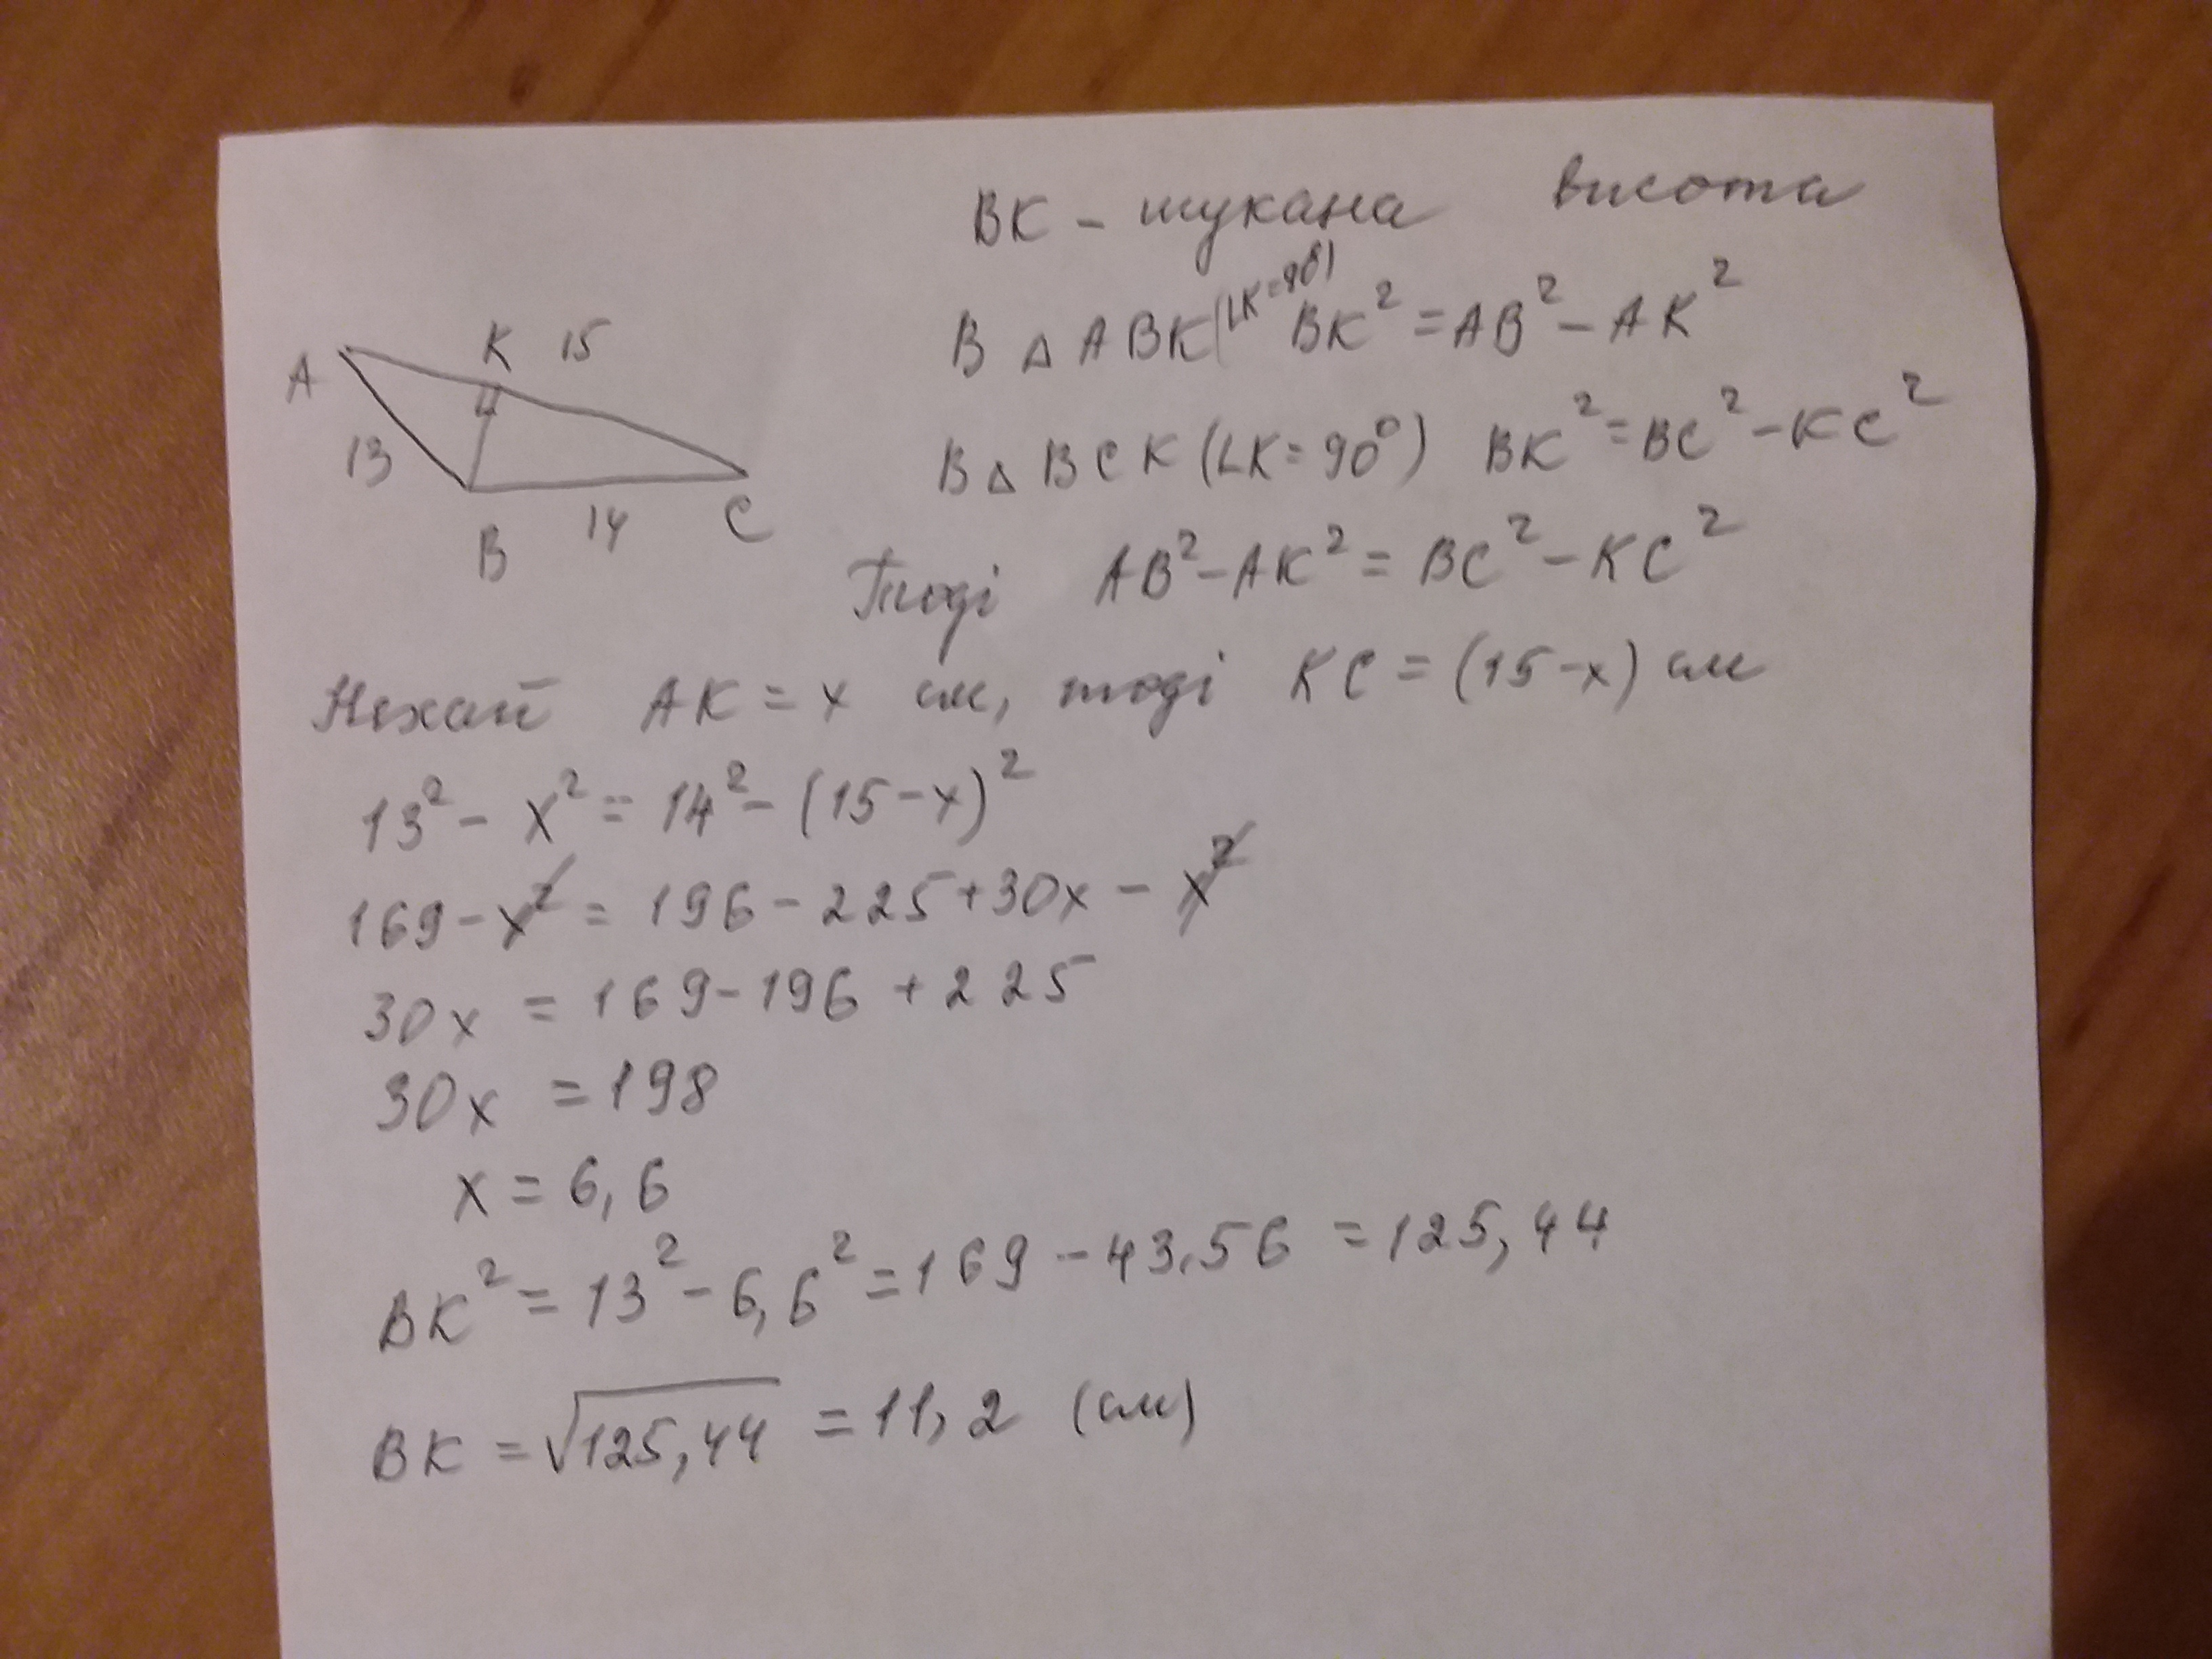 BK - шукана висота
В △ ABK (∠K=90°) BK² = AB² - AK²
A K 15
13
B 14 C
В △ BCK (∠K = 90°) BK² = BC² - KC²
Тоді AB² - AK² = BC² - KC²
Нехай AK = x см, тоді KC = (15-x) см
13² - x² = 14² - (15-x)²
169 - x² = 196 - 225 + 30x - x²
30x = 169 - 196 + 225
30x = 198
x = 6,6
BK² = 13² - 6,6² = 169 - 43,56 = 125,44
BK = √125,44 = 11,2 (см)